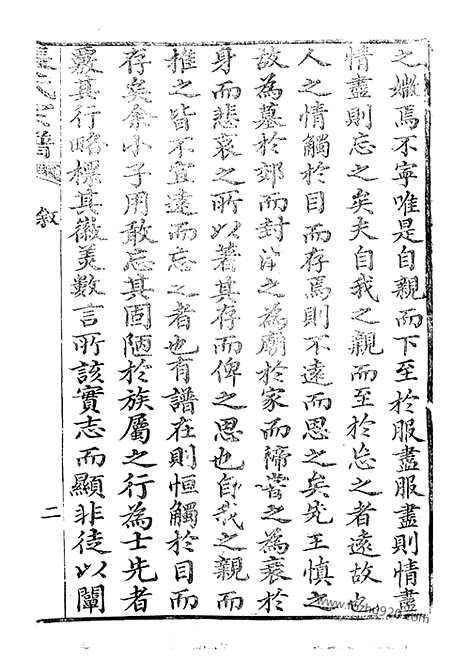 之嫩焉不寧唯是自親而下至於服盡服盡則情盡
情盡則忘之矣夫自我之親而至於忘之者遠故也
人之情觸於目而存焉則不遠而思之矣先王慎之
故為墓於郊而封溝之為廟於家而禘嘗之為衰於
身而悲哀之所以著其存而俾之思也自我之親而
推之皆不宜遠而忘之者也有譜在則恒觸於目而
存矣余小子用敢忘其固陋於族屬之行為士先者
覈其行略標其徽美數言所該實志而顯非徒以闡
氏宗譜
敘
二